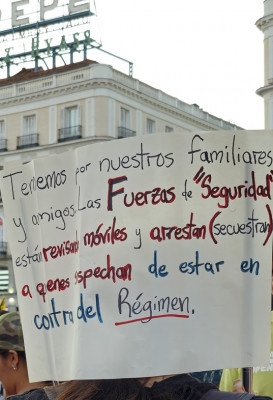 PEPE
Tememos por nuestros familiares
y amigos. Las Fuerzas de "Seguridad"
están revisando móviles y arrestan (secuestran)
a quienes sospechan de estar en
contra del Régimen.